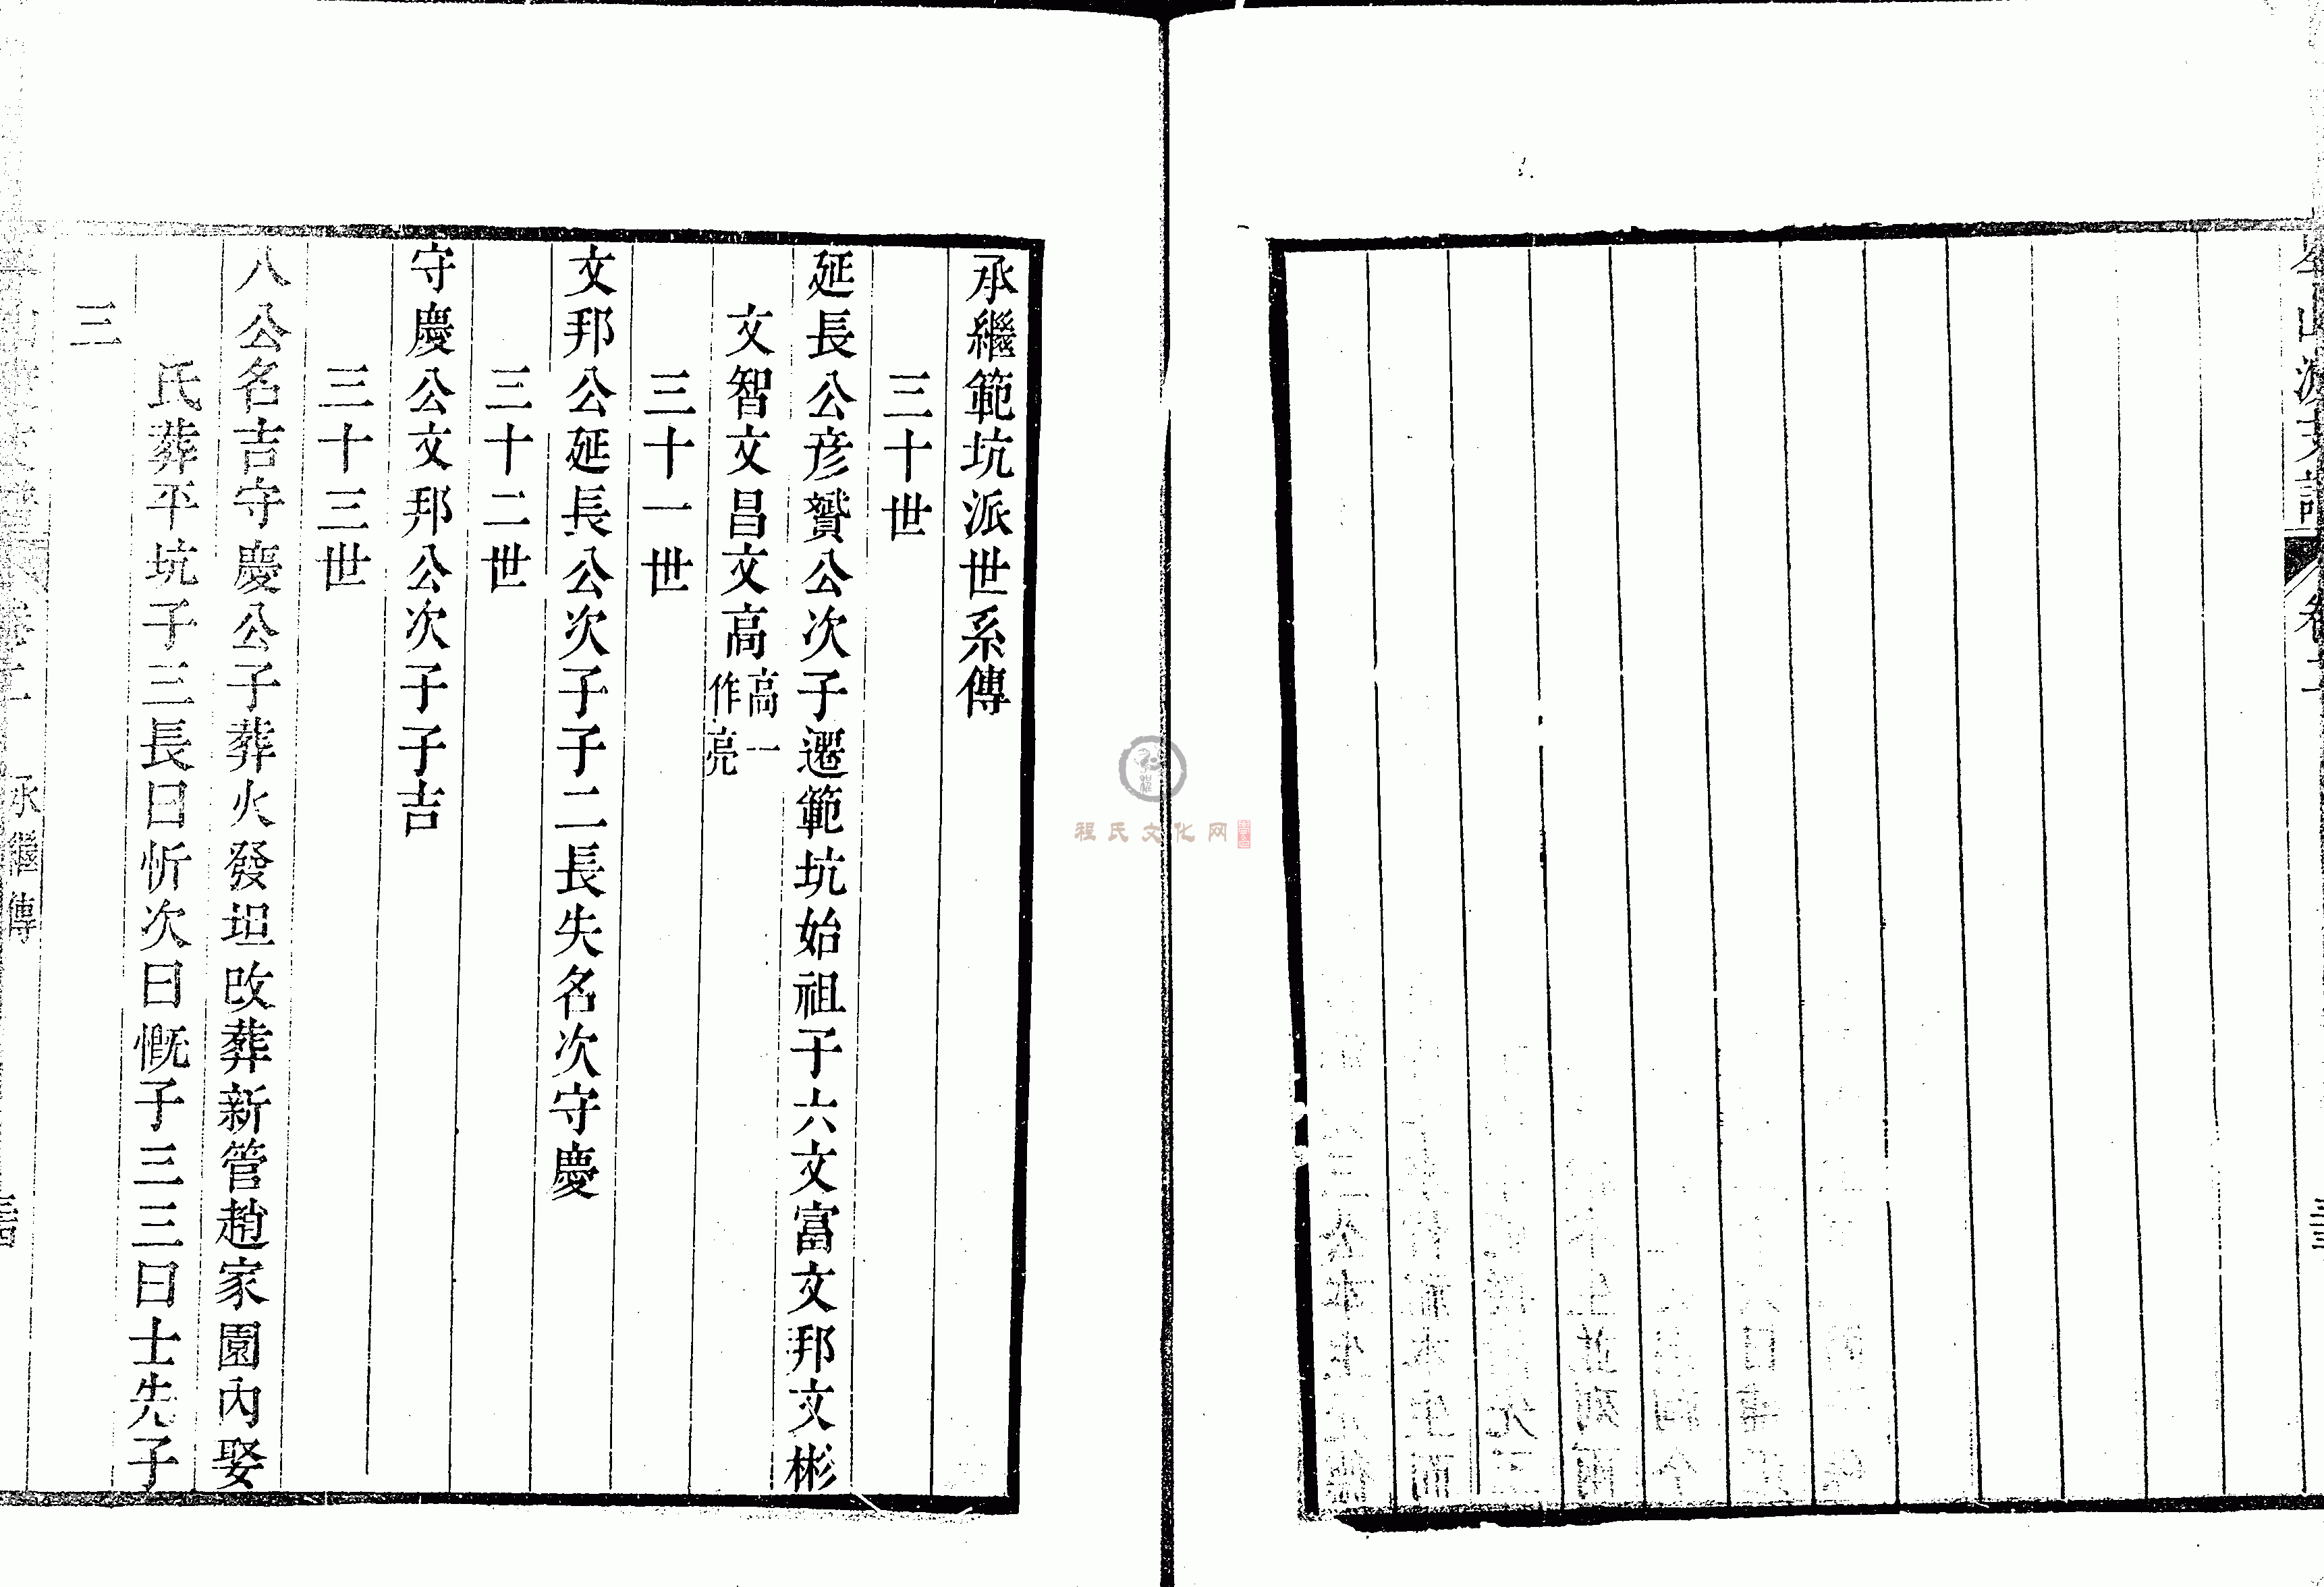 承繼範坑派世系傳
三十世
延長公彦贇公次子遷範坑始祖子六文富文邦文彬
文智文昌文高高一作亮
三十一世
文邦公延長公次子子二長失名次守慶
三十二世
守慶公文邦公次子子吉
三十三世
八公名吉守慶公子葬火發坦改葬新管趙家園內娶
氏葬平坑子三長曰忻次曰慨子三三曰士先子
三
承繼傳
程氏文化网